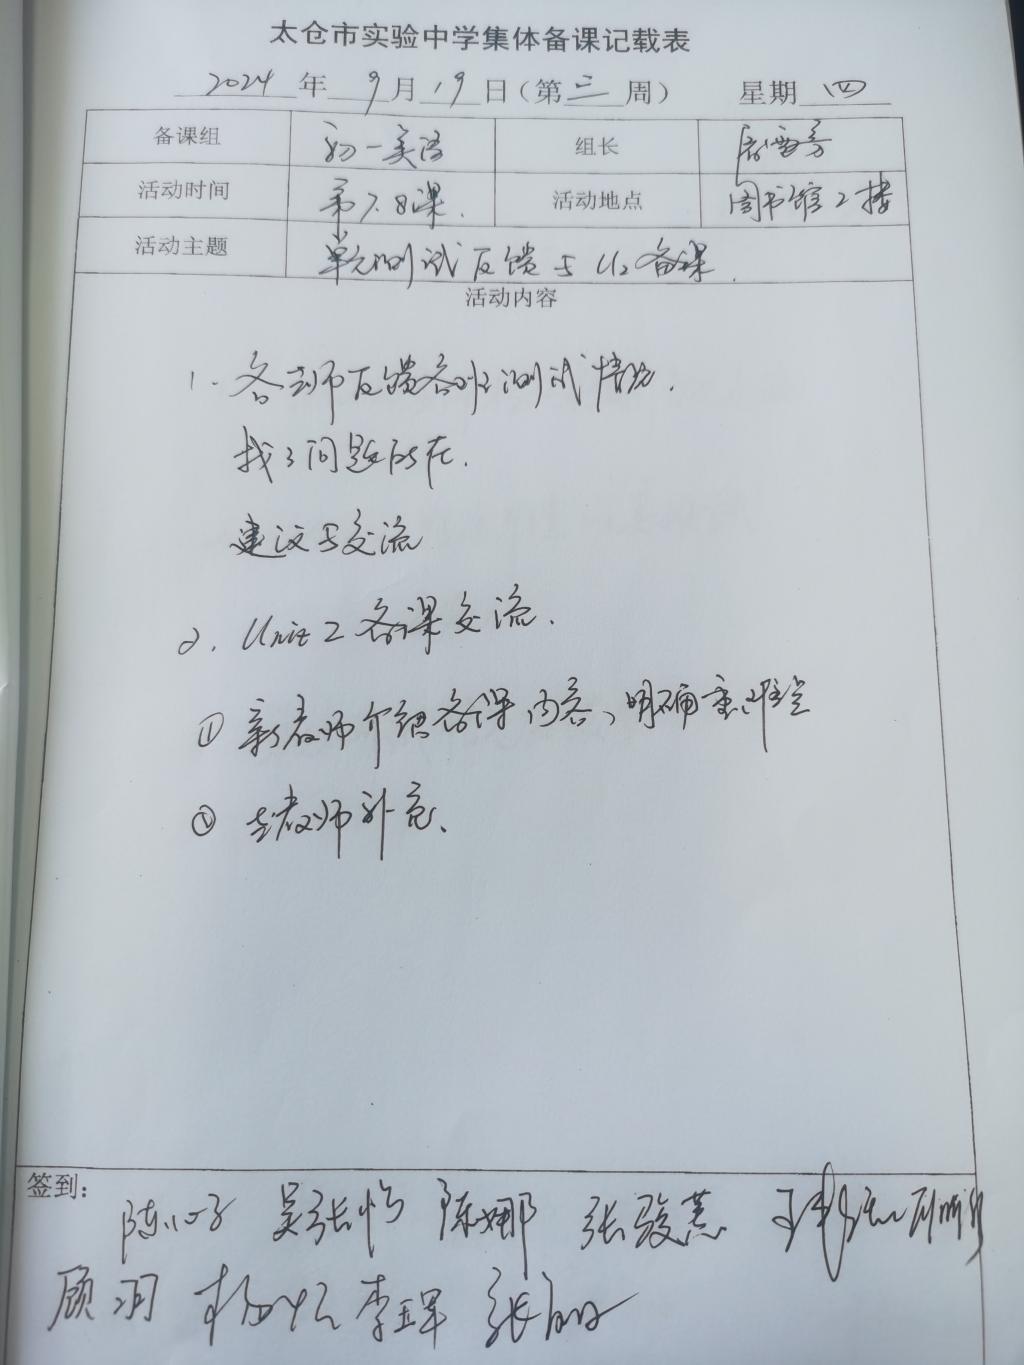 太仓市实验中学集体备课记载表
2024 年 9 月 19 日（第 三 周） 星期 四
备课组 初一英语 组长
活动时间 第7.8课. 活动地点 图书馆2楼
活动主题 单元测试反馈与U2备课.
活动内容
1. 各老师反馈各班测试情况.
找了问题所在.
建议与交流
2. Unit 2 备课交流.
① 新教师介绍备课内容、明确重难点
② 老教师补充.
签到:
陈心子 吴张怡 陈娜 张骏慧
顾羽 杨忆 李军 张丽